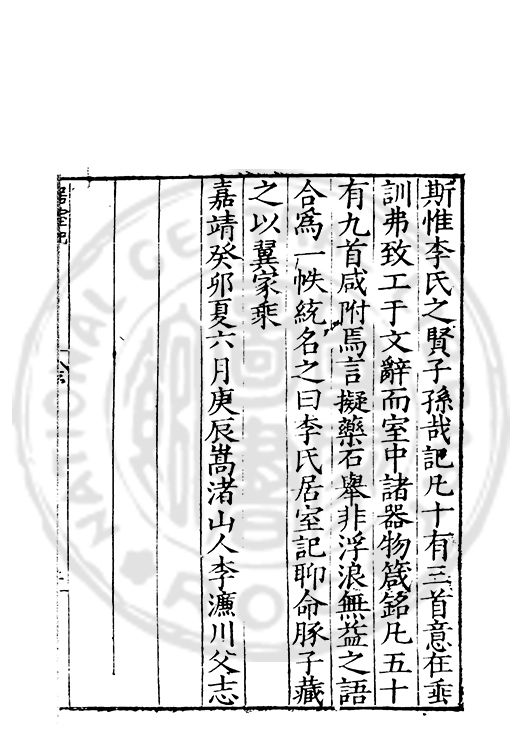 斯惟李氏之賢子孫哉記凡十有三首意在垂
訓弗致工于文辭而室中諸器物箴銘凡五十
有九首咸附焉言擬藥石舉非浮浪無益之語
合爲一帙統名之曰李氏居室記聊命豚子藏
之以翼家乘
嘉靖癸卯夏六月庚辰嵩渚山人李濂川父志
居室記